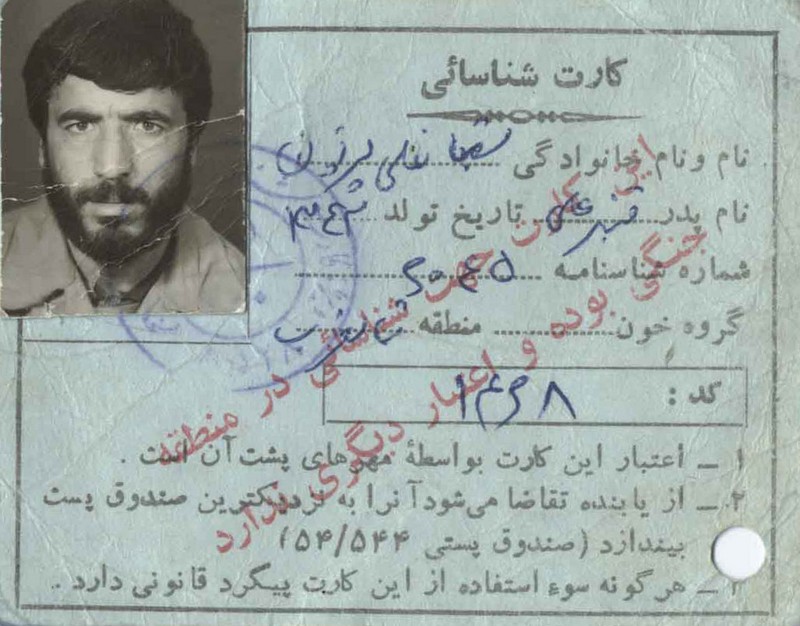 کارت شناسائی
نام ونام خانوادگی
نام پدر قنبرعلی تاریخ تولد
شماره شناسنامه
گروه خون منطقه
کد :
۱ ـ اعتبار این کارت بواسطهٔ مهرهای پشت آن است .
۲ ـ از یابنده تقاضا می‌شود آنرا به نزدیکترین صندوق پست
بیندازد (صندوق پستی ۵۴/۵۴۴)
۳ ـ هرگونه سوء استفاده از این کارت پیگرد قانونی دارد .
این کارت جهت شناسائی در منطقه
جنگی بوده و اعتبار دیگری ندارد